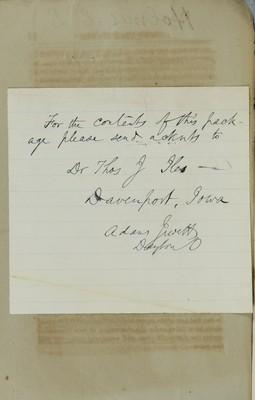 For the contents of this pack-
age please send acknts to
Dr Thos J Iles —
Davenport, Iowa
Adams Jewett
Dayton O